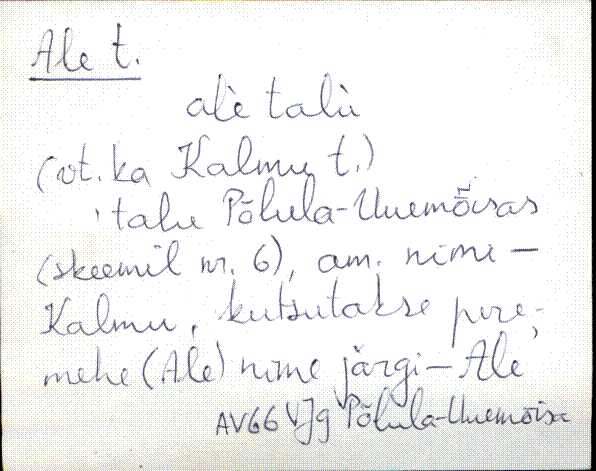 Ale t.
alè talù
(vt. ka Kalmu t.)
talu Põlula-Uuemõisas
(skeemil nr. 6), am. nimi –
Kalmu, kutsutakse pere-
mehe (Ale) nime järgi – Ale
AV66 VJg Põlula-Uuemõisa